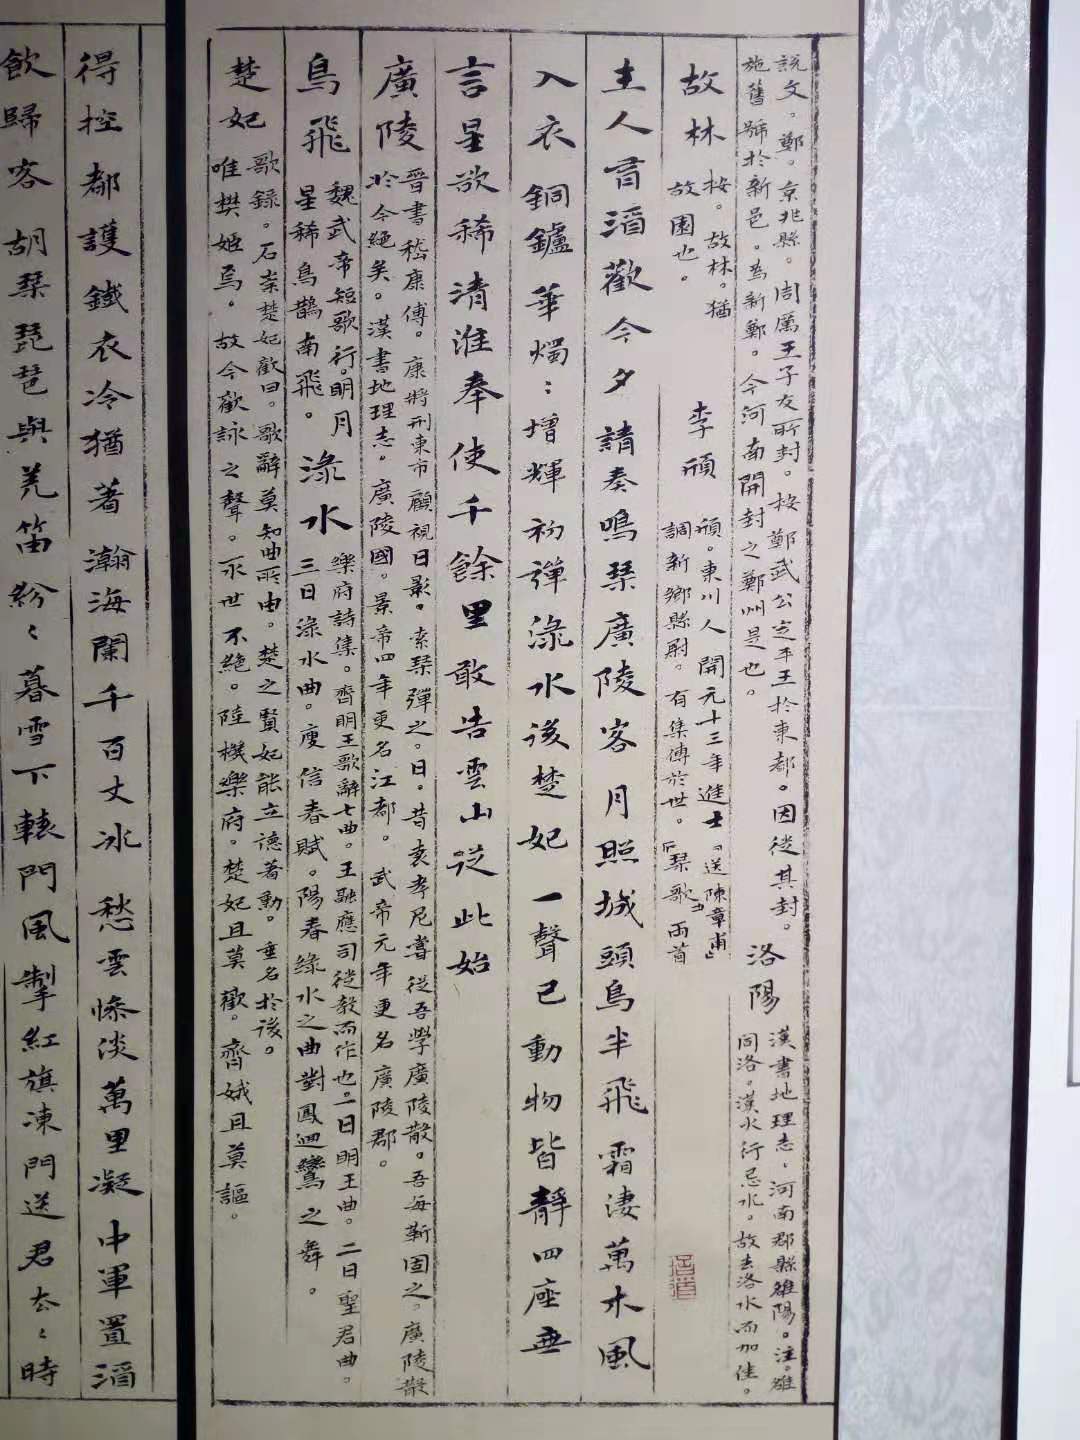 說文。鄭。京兆縣。周厲王子友所封。按鄭武公定平王於東都。因徙其封。
施舊號於新邑。為新鄭。今河南開封之鄭州是也。
洛陽
漢書地理志、河南郡縣雒陽。注。雒
同洛。漢火行忌水。故去洛水而加佳。
故林
按。故林。猶
故園也。
李頎
頎。東川人開元十三年進士『送陳章甫』
調新鄉縣尉。有集傳於世。『琴歌』兩首
主人有酒歡今夕請奏鳴琴廣陵客月照城頭烏半飛霜淒萬木風
入衣銅鑪華燭〻增輝初彈淥水後楚妃一聲已動物皆靜四座無
言星欲稀清淮奉使千餘里敢告雲山從此始
廣陵
晉書嵇康傳。康將刑東市顧視日影。索琴彈之。曰。昔袁孝尼嘗從吾學廣陵散。吾每靳固之。廣陵散
於今絕矣。漢書地理志。廣陵國。景帝四年更名江都。武帝元年更名廣陵郡。
烏飛
魏武帝短歌行。明月
星稀烏鵲南飛。
淥水
樂府詩集。齊明王歌辭七曲。王融應司徒教而作也。一曰明王曲。二曰聖君曲。
三曰淥水曲。庾信春賦。陽春綠水之曲對鳳迴鸞之舞。
楚妃
歌錄。石崇楚妃歎曰。歌辭莫知曲所由。楚之賢妃能立德著勳。垂名於後。
唯樊姬焉。故今歎詠之聲。永世不絕。陸機樂府。楚妃且莫歎。齊娥且莫謳。
得控都護鐵衣冷猶著瀚海闌千百丈冰愁雲慘淡萬里凝中軍置酒
飲歸客胡琴琵琶與羌笛紛〻暮雪下轅門風掣紅旗凍門送君去〻時